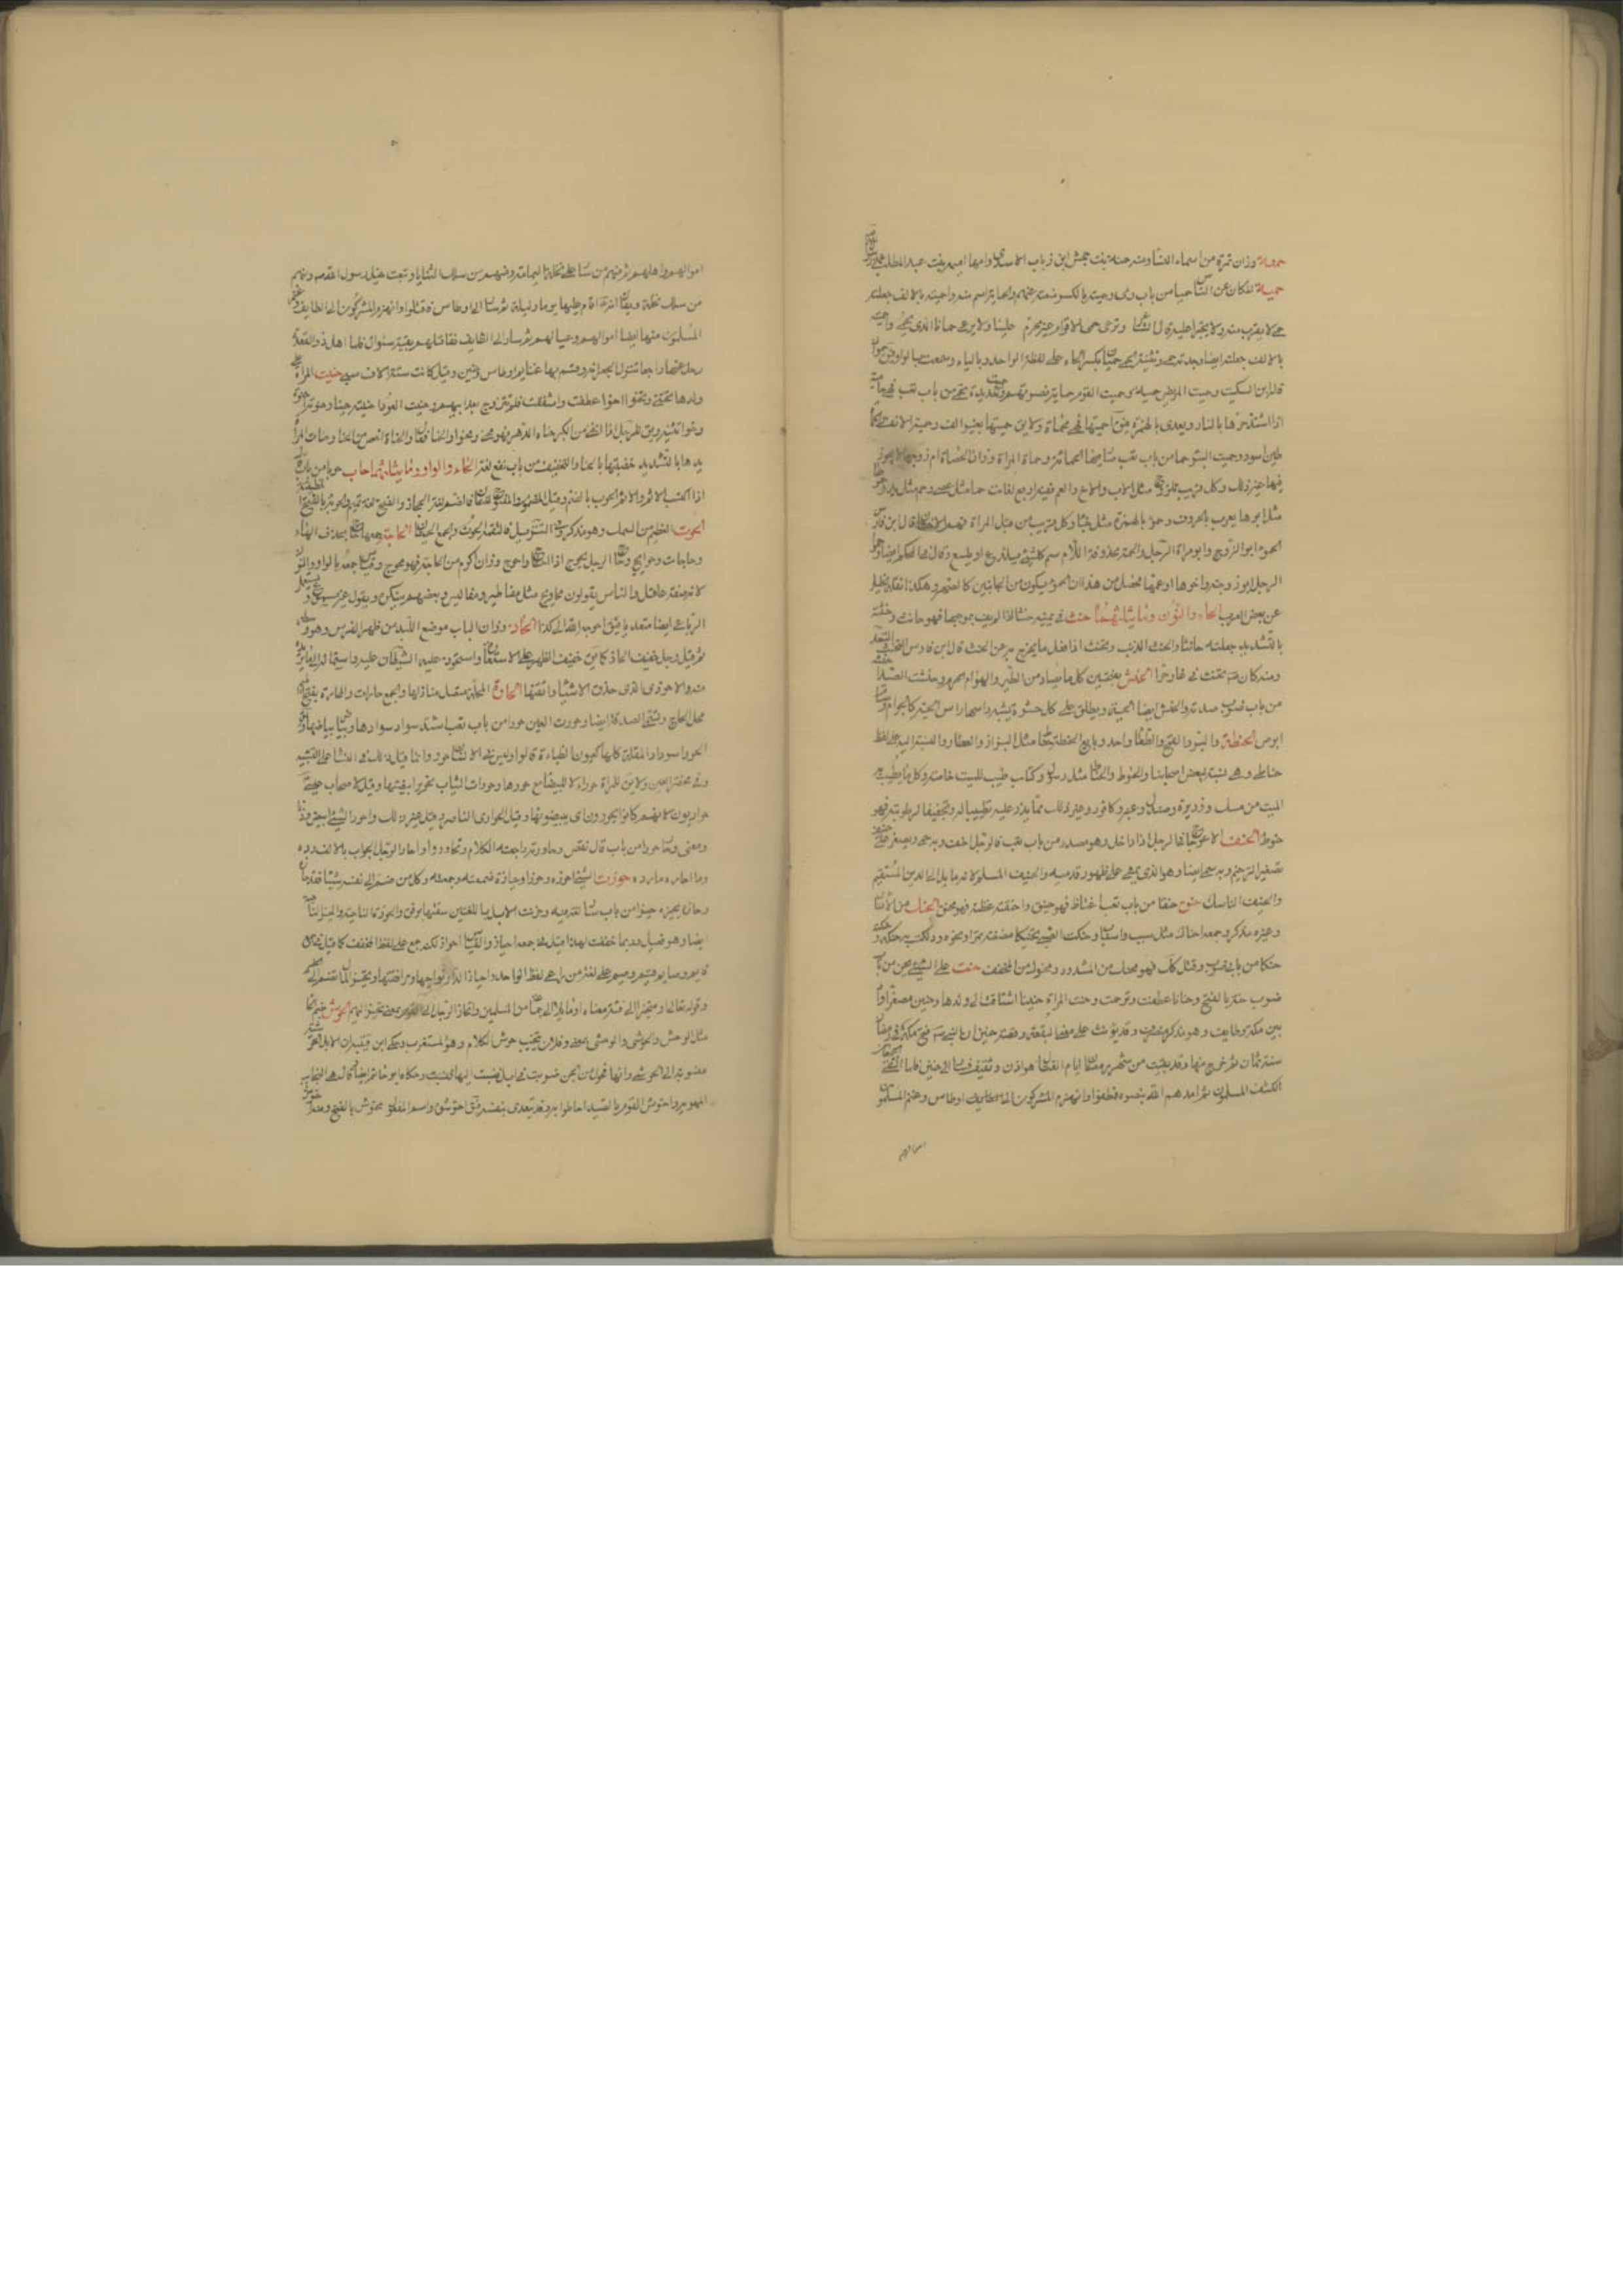 حمنة وزان تمرة من اسماء النساء ومنه حمنة بنت جحش ابن رباب الاسدي وامها اميمة بنت عبد المطلب
حميت المكان من الناس حميا من باب رمى وحمية بالكسر منعته عنهم والحماية اسم منه واحميته بالالف جعلته
حمى لا يقرب منه ولا يجترا عليه قال الشاعر ونرعى حمى الاقوام غير محرم علينا ولا يرعى حمانا الذي نحمي واحميته
بالالف جعلته ايضا وجدته حمى وتثنية الحمى حميان بكسر الحاء على لفظ الواحد وبالياء وسمعت بالواو فيقال حموان
قال ابن السكيت وحميت المريض حمية وحميت القوم حماية نصرتهم وحميت الحديدة تحمى من باب تعب فهي حامية
اذا اشتد حرها بالنار ويعدى بالهمزة فيقال احميتها فهي محماة ولا يقال حميتها بغير الف والحمأة
طين اسود وحميت البئر حما من باب تعب صار فيها الحمأة وحماة المراة وزان الحصاة ام زوجها لا يجوز
فيها غير ذلك وكل قريب للزوج مثل الاب والاخ والعم ففيه اربع لغات حما مثل عصا وحم مثل يد وحموها
مثل ابوها يعرب بالحروف وحمؤ بالهمزة مثل خبء وكل قريب من قبل المراة فهم الاختان قال ابن فارس
الحمو ابو الزوج وابو امراة الرجل والحمة محذوفة اللام سم كل شيء يلدغ او يلسع وقال في المحكم ايضا وحمو
الرجل ابو زوجته واخوها او عمها فحصل من هذا ان الحمو يكون من الجانبين كالصهر وهكذا نقله الخليل
عن بعض العرب الحاء والنون وما يثلثهما حنث في يمينه حنثا اذا لم يف بموجبها فهو حانث وحنثته
بالتشديد جعلته حانثا والحنث الذنب وتحنث اذا فعل ما يخرج به من الحنث قال ابن فارس والتحنث التعبد
ومنه كان يتحنث في غار حراء الحنش بفتحتين كل ما يصاد من الطير والهوام وحنشت الصيد
من باب ضرب صدته والحنش ايضا الحية ويطلق على كل حشرة يشبه راسها راس الحية كالحرابي وسام
ابرص الحنطة والبر والقمح والطعام واحد وبايع الحنطة حناط مثل البزاز والعطار والنسبة اليه على لفظه
حناطي وهي نسبة لبعض اصحابنا والحنوط والحناط مثل رسول وكتاب طيب يخلط للميت خاصة وكل ما يطيب به
الميت من مسك وذريرة وصندل وعنبر وكافور وغير ذلك مما يذر عليه تطييبا له وتجفيفا لرطوبته فهو
حنوط الحنف الاعوجاج في الرجل الى داخل وهو مصدر من باب تعب فالرجل احنف وبه سمي ويصغر على حنيف
تصغير الترخيم وبه سمي ايضا وهو الذي يمشي على ظهور قدميه والحنيف المسلم لانه مايل الى الدين المستقيم
والحنيف الناسك حنق حنقا من باب تعب اغتاظ فهو حنق واحنقته غظته فهو محنق الحنك من الانسان
وغيره مذكر وجمعه احناك مثل سبب واسباب وحنكت الصبي تحنيكا مضغت تمرا ونحوه ودلكت به حنكه وحنكته
حنكا من بابي ضرب وقتل كذلك فهو محنك من المشدد ومحنوك من المخفف حنت على الشيء يحن من باب
ضرب حنة بالفتح وحنانا عطفت وترحمت وحنت المراة حنينا اشتاقت الى ولدها وحنين مصغر واد
بين مكة والطايف وهو مذكر منصرف وقد يؤنث على معنى البقعة وقصة حنين ان النبي فتح مكة في رمضان
سنة ثمان ثم خرج منها وقد بقيت من شهر رمضان ايام لقتال هوازن وثقيف فسار الى حنين فلما التقى
انكشف المسلمون ثم امدهم الله بنصره فعطفوا وانهزم المشركون الى اوطاس وغنم المسلمون
اموالهم
اموالهم واهلهم ثم منهم من سار على نخلة اليمامة ومنهم من سلك الثنايا وتبعت خيل رسول الله من
من سلك نخلة ويقال انه اقام عليها يوما وليلة ثم سار الى اوطاس فاقتتلوا وانهزم المشركون الى الطايف وغنم
المسلمون منها ايضا اموالهم وعيالهم ثم سار الى الطايف فقاتلهم بقية شوال فلما اهل ذو القعدة
رحل عنها راجعا فنزل الجعرانة وقسم بها غنايم اوطاس وحنين وقيل كانت ستة الاف سبي حنيت المراة على
ولدها تحنى وتحنو احنوا عطفت واشفقت فلم تتزوج بعد ابيهم وحنيت العود احنيه حنيا وحنوته احنوه
وحنوا ثنيته ويقال للرجل اذا انحنى من الكبر حناه الدهر فهو محني ومحنو والحناء فعال والحناءة اخص من الحناء وحنات المراة
يدها بالتشديد خضبتها بالحناء والتخفيف من باب نفع لغة الحاء والواو وما يثلثهما حاب حوبا من باب قال
اذا اكتسب الاثم والاسم الحوب بالضم وقيل المضموم والمفتوح لغتان فالضم لغة الحجاز والفتح لغة تميم والحوبة بالفتح الخطيئة
الحوت العظيم من السمك وهو مذكر وفي التنزيل فالتقمه الحوت والجمع حيتان الحاجة وجمعها حاج بحذف الهاء
وحاجات وحوايج وحاج الرجل يحوج اذا احتاج واحوج وزان اكرم من الحاجة فهو محوج وقياس جمعه بالواو والنون
لانه صفة عاقل والناس يقولون محاويج مثل مفاطير ومفاليس وبعضهم ينكره ويقول غير مسموع ويستعمل
الرباعي ايضا متعديا فيقال احوجه الله الى كذا الحاذ وزان الباب موضع اللبد من ظهر الفرس وهو وسطه
ثم قيل رجل خفيف الحاذ كما يقال خفيف الظهر على الاستعارة واستحوذ عليه الشيطان غلبه واستماله الى ما يريده
منه والاحوذي الذي حذق الاشياء واتقنها الحارة المحلة تتصل منازلها والجمع حارات والمحارة بفتح الميم
محل الحاج وتسمى الصدفة ايضا وحورت العين حورا من باب تعب اشتد سواد سوادها وبياض بياضها ويقال
الحور اسوداد المقلة كلها كعيون الظباء قالوا وليس في الانسان حور وانما قيل ذلك في النساء على التشبيه
وفي مختصر العين ولا يقال للمراة حوراء الا للبيضاء مع حورها وحورت الثياب تحويرا بيضتها وقيل لاصحاب عيسى
حواريون لانهم كانوا يحورون اي يبيضونها وقيل الحواري الناصر وقيل غير ذلك واحور الشيء ابيض وزنا
ومعنى وحار حورا من باب قال نقص وحاورته راجعته الكلام وتحاوروا واحار الرجل الجواب بالالف رده
وما احاره ما رده حوزت الشيء احوزه وحوزا وحيازة ضممته وجمعته وكل من ضم الى نفسه شيئا فقد حازه
وحازه يحيزه حيزا من باب سار لغة فيه وحزت الابل باللغتين سقتها برفق والحوزة الناحية والحيز الناحية
ايضا وهو فيعل وربما خفف ولهذا قيل في جمعه احياز والقياس احواز لكنه جمع على لفظ المخفف كما قيل في جمع
قايم وصايم قيم وصيم على لغة من راعى لفظ الواحد واحياز الدار نواحيها ومرافقها وتحيز المال انضم الى الحيز
وقوله تعالى او متحيزا الى فئة معناه او مايلا الى جماعة من المسلمين وانحاز الرجل الى القوم بمعنى تحيز اليهم الحوش بضم الحاء
مثل الوحش والحوشي والوحشي بمعنى وفلان يتجنب حوشي الكلام وهو المستغرب وحكى ابن قتيبة ان الابل الحوشية
منسوبة الى الحوش وانها فحول من الجن ضربت في ابل فنسبت اليها وحكاه ابو حاتم ايضا وقال هي النجايب
المهرية واحتوش القوم بالصيد احاطوا به وقد يتعدى بنفسه فيقال احتوشوه واسم المفعول محتوش بالفتح ومنه